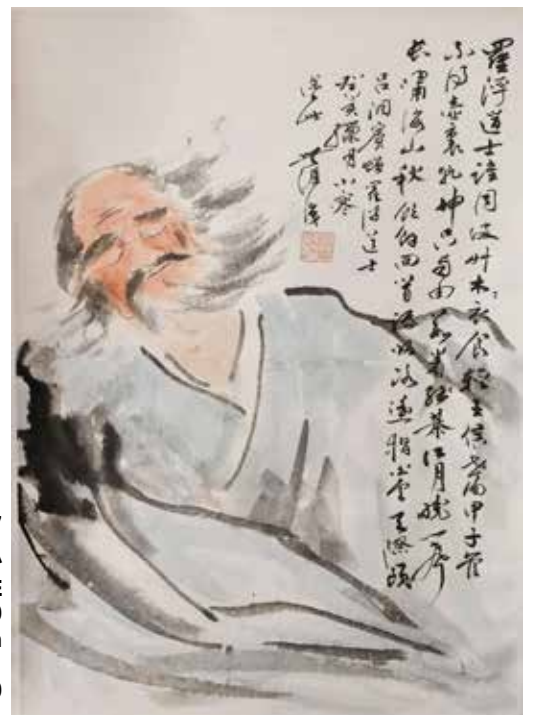 羅浮道士誰同流艸木衣食輕王侯世間甲子管
不得壺裏乾坤只自由數著殘棊江月曉一聲
長嘯海山秋飲餘回首話歸路遙指白雲天際頭
呂洞賓贈羅浮道士
亥月小寒